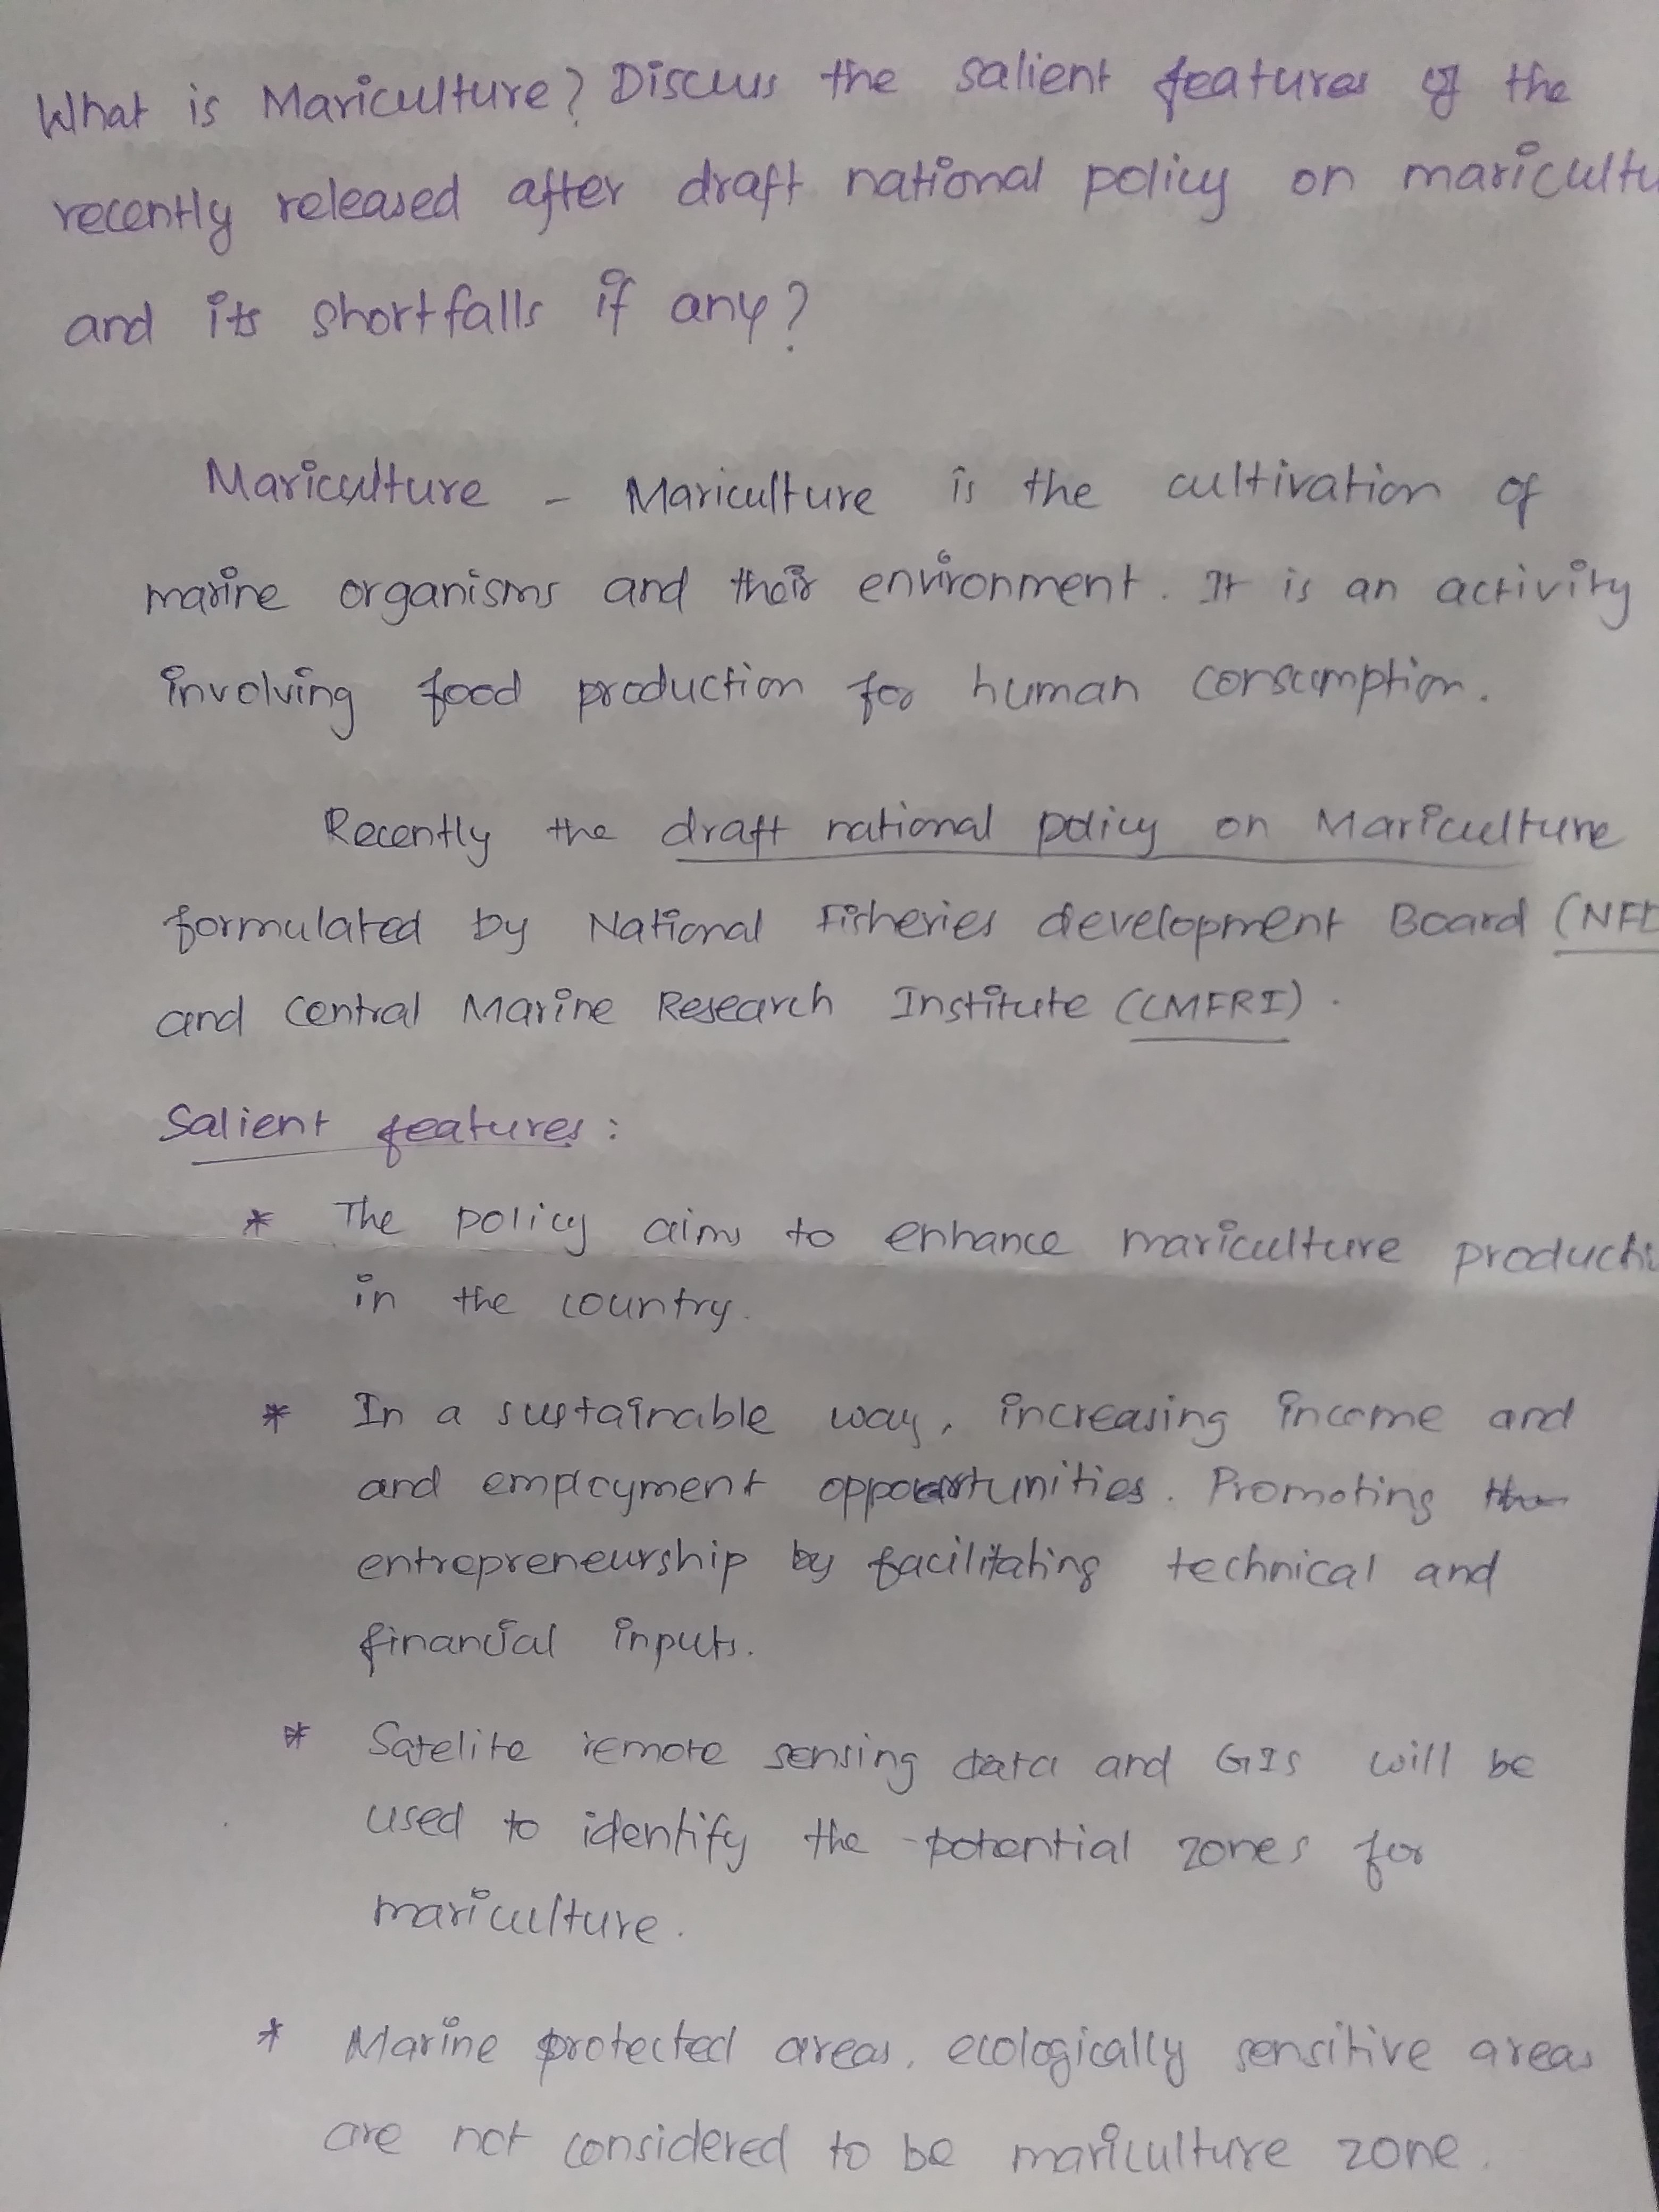 What is Mariculture? Discuss the salient features of the
recently released after draft national policy on maricultu
and its shortfalls if any?
Mariculture - Mariculture is the cultivation of
marine organisms and their environment. It is an activity
involving food production for human consumption.
Recently the draft national policy on Mariculture
formulated by National Fisheries development Board (NFD
and Central Marine Research Institute (CMFRI).
Salient features:
* The policy aims to enhance mariculture producti
in the country.
* In a sustainable way, increasing income and
and employment opportunities. Promoting
entrepreneurship by facilitating technical and
financial inputs.
* Satelite remote sensing data and GIS will be
used to identify the potential zones for
mariculture.
* Marine protected areas, ecologically sensitive areas
are not considered to be mariculture zone.